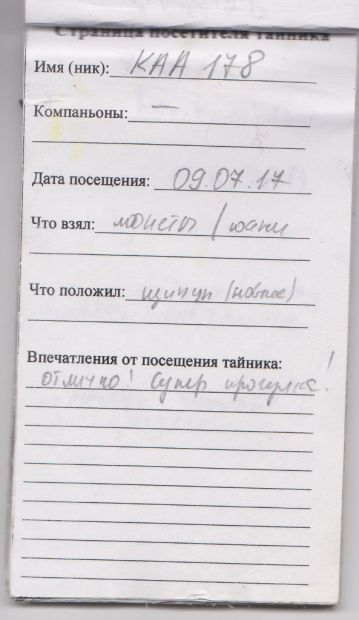 Страница посетителя тайника
Имя (ник): КАА 178
Компаньоны: —
Дата посещения: 09.07.17
Что взял: монеты /
Что положил: щипцы (новые)
Впечатления от посещения тайника:
отлично! Супер прогулка!